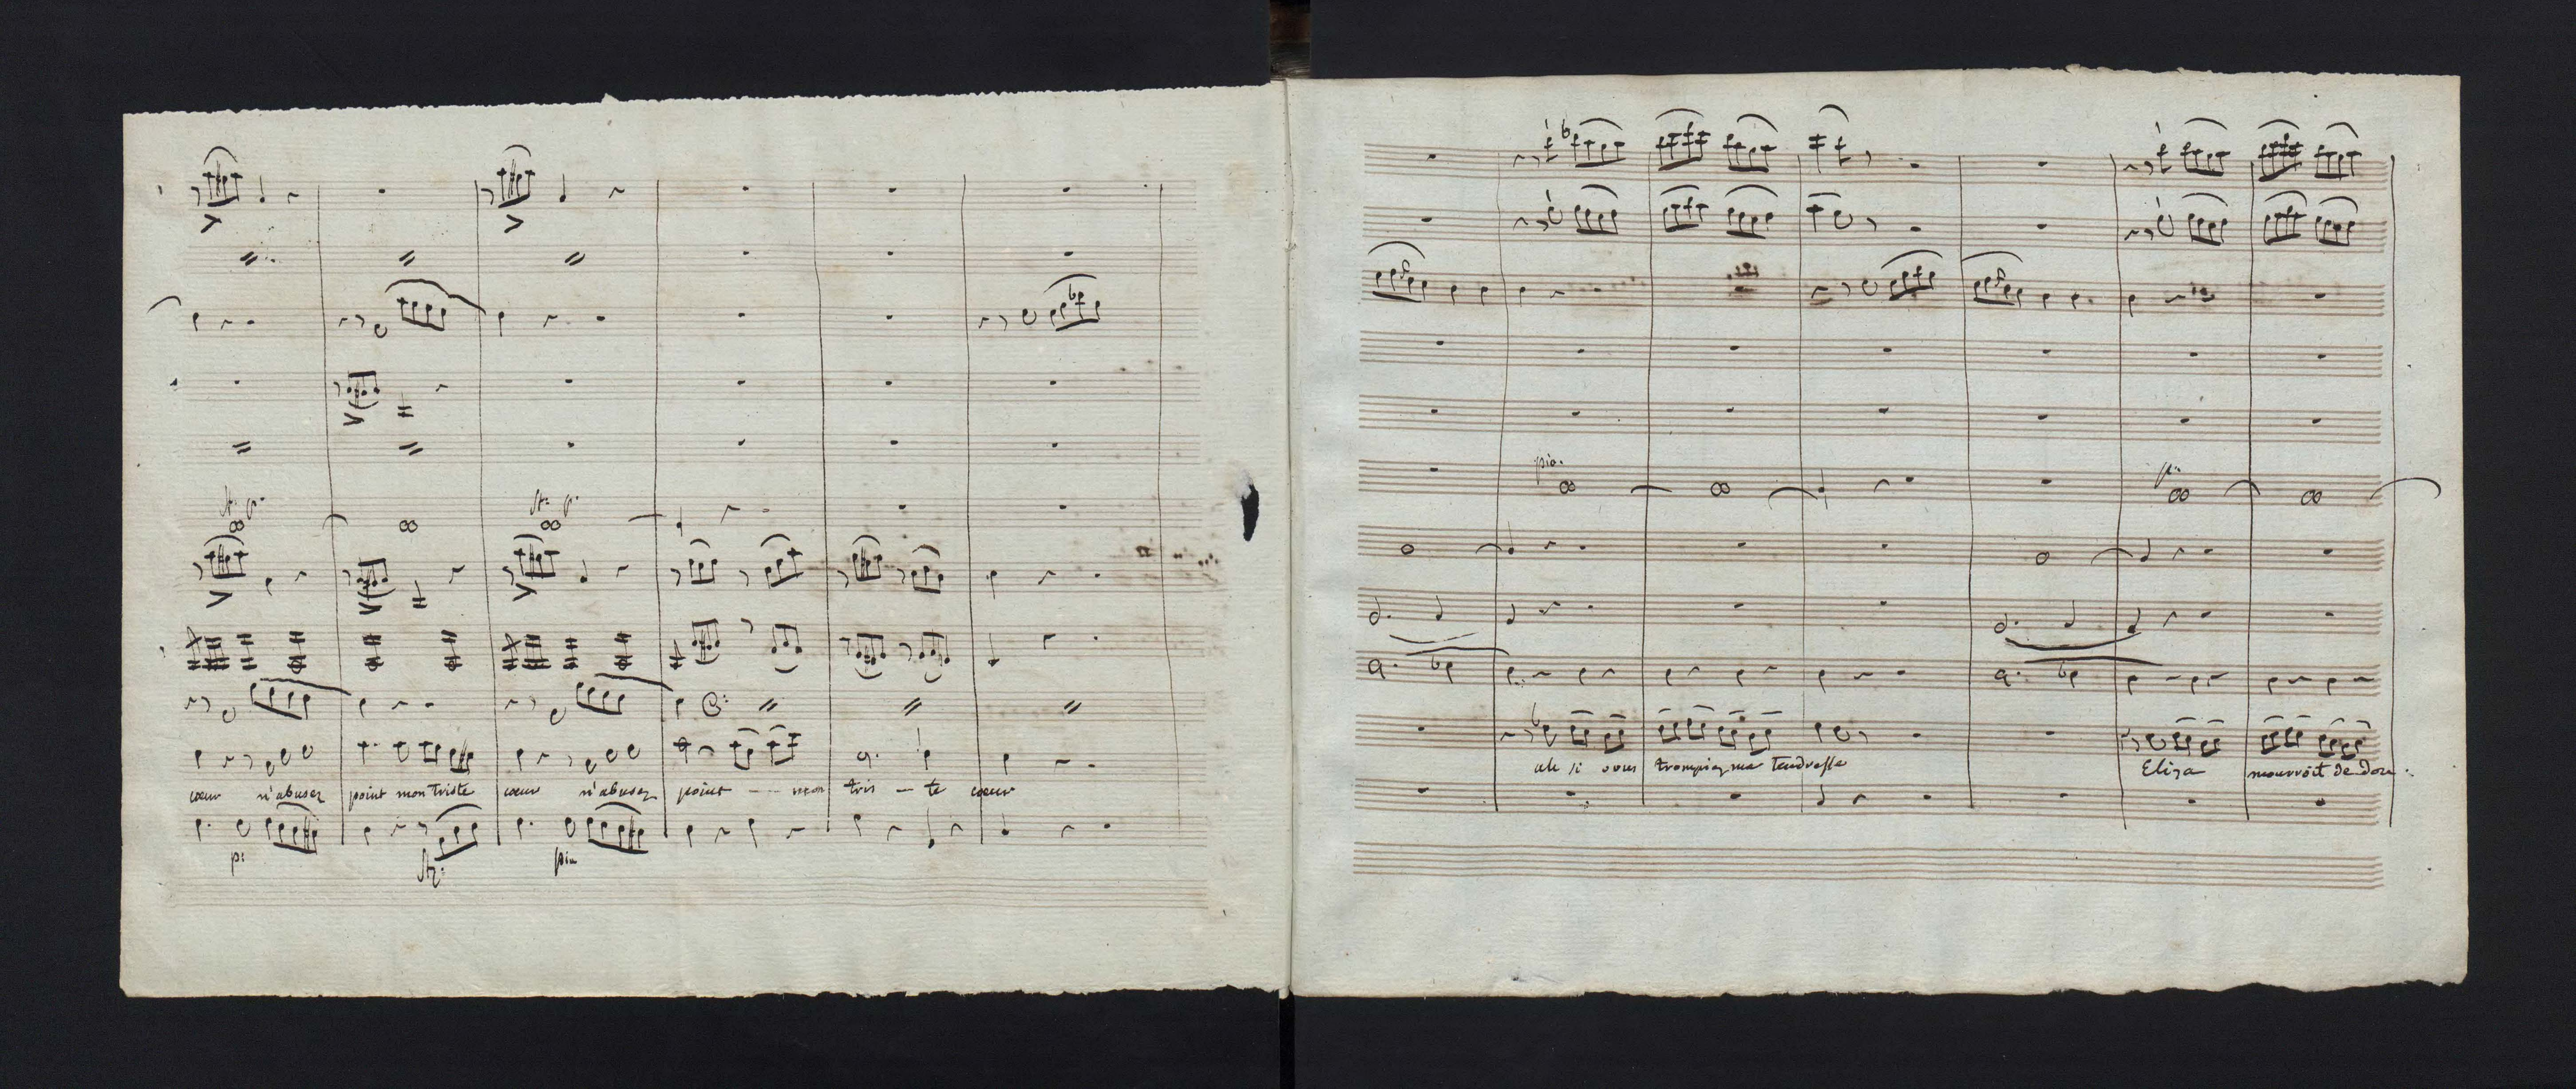 fz. p.
fz. p.
cœur n'abusez point mon triste cœur n'abusez point - - mon tris - te cœur
p:
fz.
pia
pia.
p.
ah si vous trompiez ma tendresse
Eliza mourroit de dou